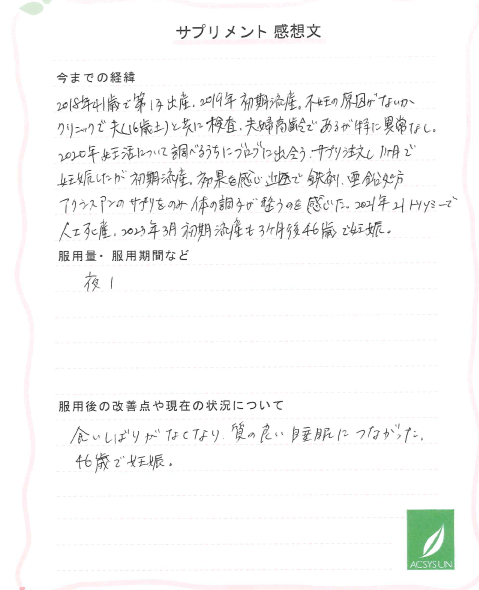 サプリメント 感想文
今までの経緯
2018年41歳で第1子出産、2019年初期流産。不妊の原因がないか
クリニックで夫(16歳上)と共に検査、夫婦高齢であるが特に異常なし。
2020年妊活について調べるうちにブログに出会う。サプリ注文し1ヶ月で
妊娠したが初期流産。効果を感じ 近医で鉄剤、亜鉛処方
アクシスアンのサプリをのみ体の調子が整うのを感じた。2021年21トリソミーで
人工死産、2023年3月初期流産も3ヶ月後46歳で妊娠。
服用量・服用期間など
夜1
服用後の改善点や現在の状況について
食いしばりがなくなり、質の良い睡眠につながった。
46歳で妊娠。
ACSYS LIN